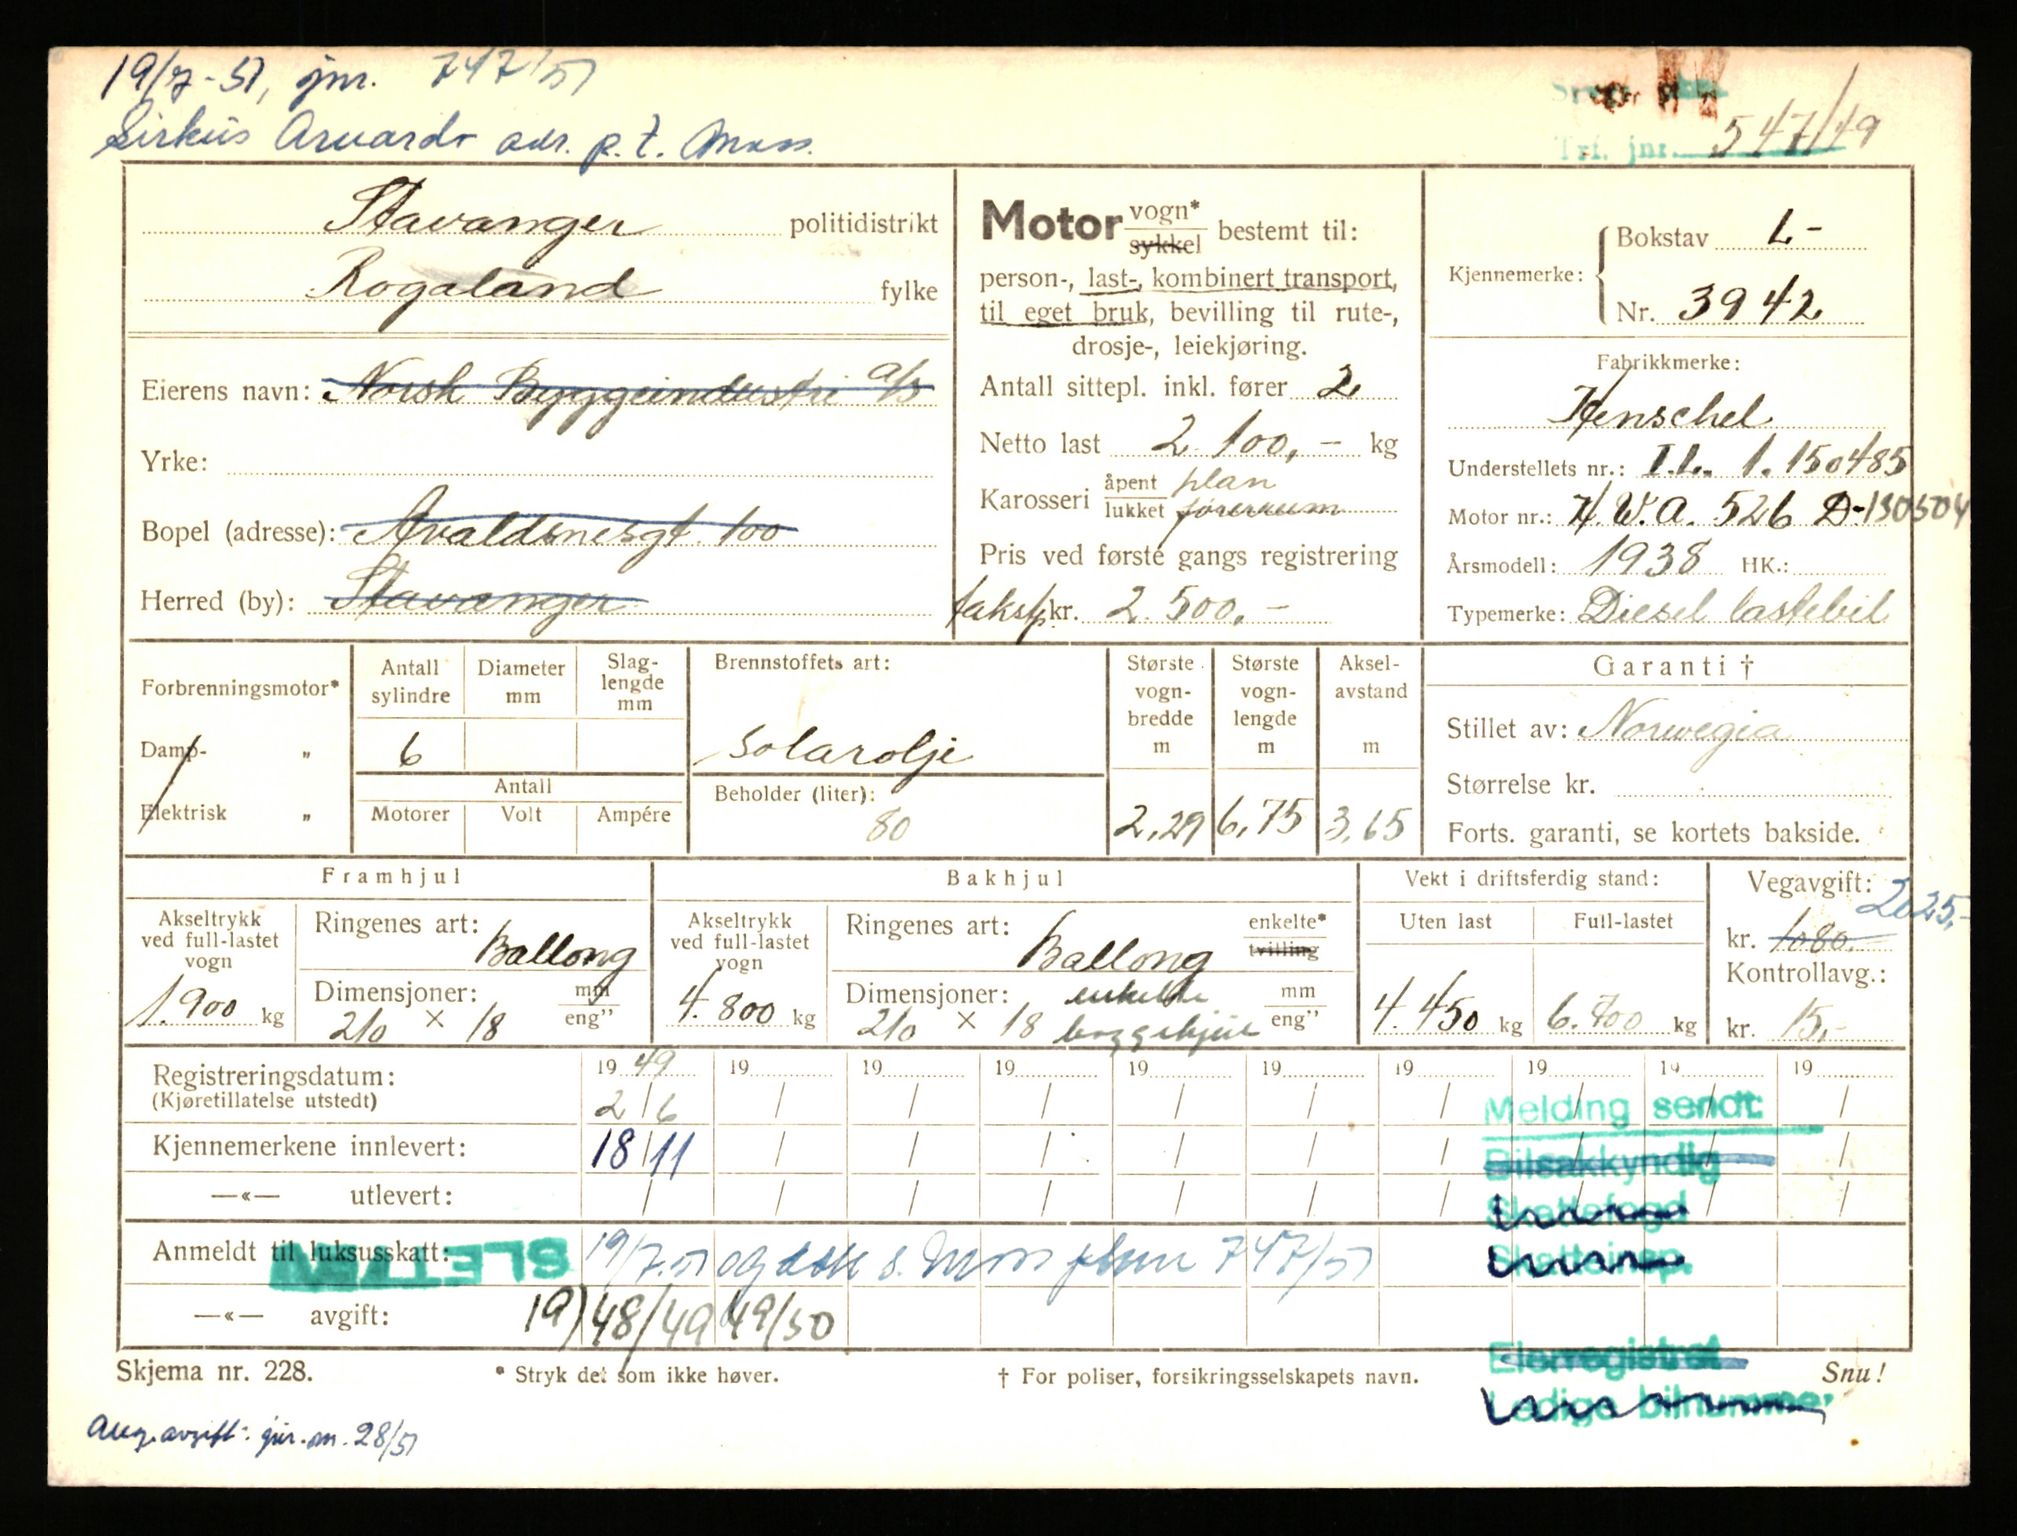 19/7-51, jnr. 747/51
Sirkus Arnardo adr. p.t. Moss.
Trf. jnr. 547/49
Stavanger politidistrikt
Rogaland fylke
Eierens navn: Norsk Byggeindustri a/s
Yrke:
Bopel (adresse): Avaldsnesgt. 100
Herred (by): Stavanger
Motor vogn* sykkel bestemt til:
person-, last-, kombinert transport,
til eget bruk, bevilling til rute-,
drosje-, leiekjøring.
Antall sittepl. inkl. fører 2
Netto last 2 100,- kg
Karosseri åpent plan
lukket førerrum
Pris ved første gangs registrering
takstp. kr. 2 500,-
Kjennemerke: Bokstav L-
Nr. 3942
Fabrikkmerke:
Henschel
Understellets nr.: I.L. 1.150485
Motor nr.: H.W.A. 526 D-130504
Årsmodell: 1938 HK.:
Typemerke: Diesel lastebil
Forbrenningsmotor*
Damp- „
Elektrisk „
Antall sylindre
Diameter mm
Slag-lengde mm
6
Antall
Motorer Volt Ampére
Brennstoffets art:
solarolje
Beholder (liter):
80
Største vogn-bredde m
2,29
Største vogn-lengde m
6,75
Aksel-avstand m
3,65
Garanti †
Stillet av: Norwegia
Størrelse kr.
Forts. garanti, se kortets bakside.
Framhjul
Akseltrykk ved full-lastet vogn
1.900 kg
Ringenes art: Ballong
Dimensjoner: mm eng"
210 × 18
Bakhjul
Akseltrykk ved full-lastet vogn
4.800 kg
Ringenes art: Ballong enkelte* tvilling
Dimensjoner: enkelte mm eng"
210 × 18 boggehjul
Vekt i driftsferdig stand:
Uten last Full-lastet
4.450 kg 6.700 kg
Vegavgift: 2025,-
kr. 1080.
Kontrollavg.:
kr. 15,-
Registreringsdatum: 19 49 19 19 19 19 19 19 19 19 19
(Kjøretillatelse utstedt) 2/6 / / / / / / / / /
Kjennemerkene innlevert: 18/11 / / / / / / / / /
—«— utlevert: / / / / / / / / / /
Anmeldt til luksusskatt: 19/7.51 747/51
SLETTET
—«— avgift: 19) 48/49 49/50
Melding sendt:
Bilsakkyndig
Skattefogd
Skatteinsp.
Eierregistret
Ledige bilnummer
Skjema nr. 228.
* Stryk det som ikke høver.
† For poliser, forsikringsselskapets navn.
Snu!
avgift: jnr. 28/51